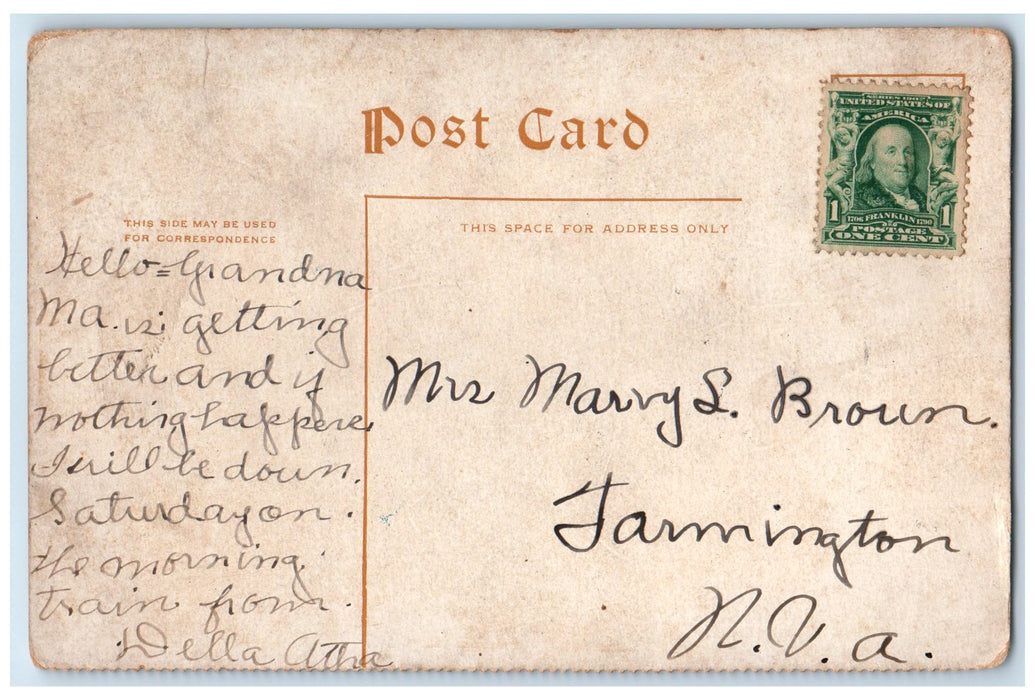 Post Card
THIS SIDE MAY BE USED
FOR CORRESPONDENCE
THIS SPACE FOR ADDRESS ONLY
SERIES 1902
UNITED STATES OF
AMERICA
1 1
1706 FRANKLIN 1790
POSTAGE
ONE CENT
Hello = Grandma
Ma. is getting
better and if
nothing happens
I will be down.
Saturday on.
the morning
train from.
Della
Mrs Marvy L. Brown.
Farmington
N.V.a.